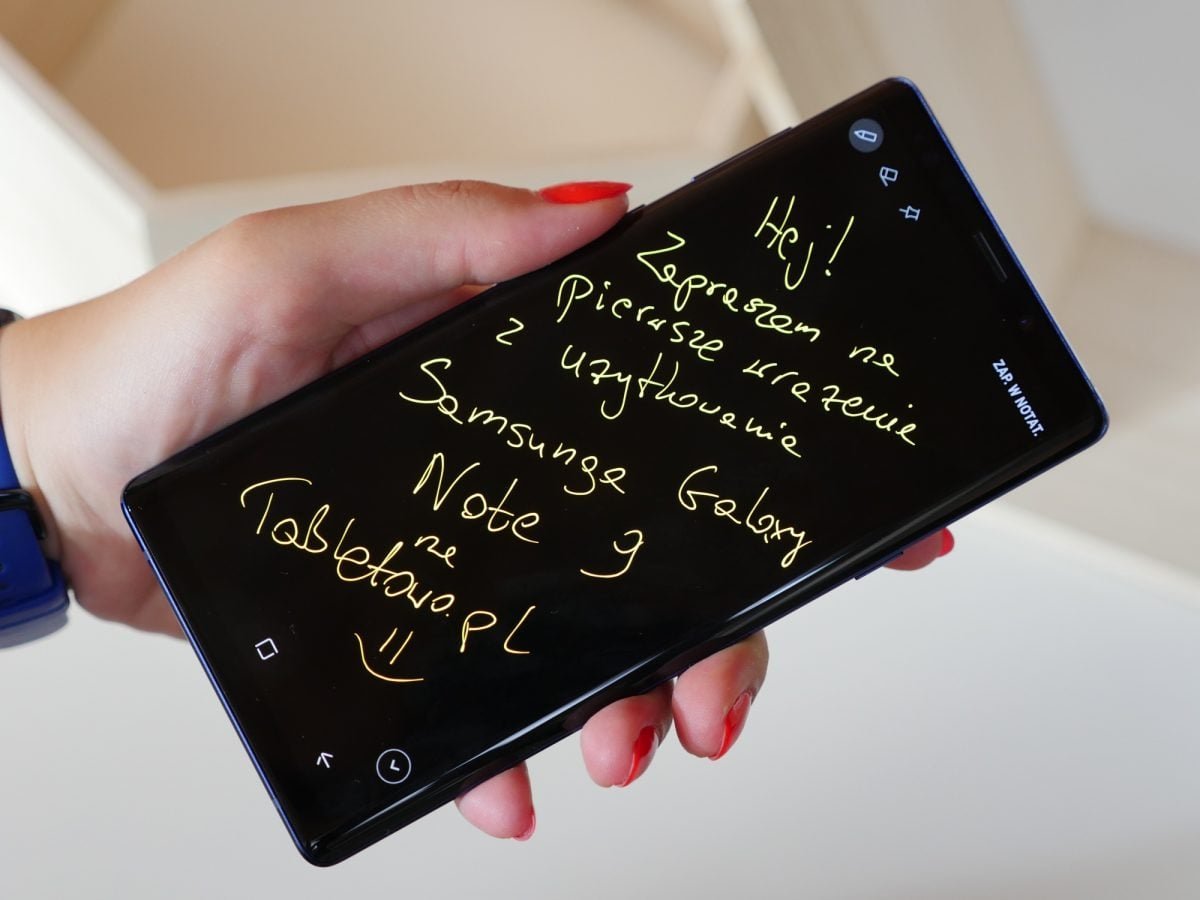 Hej!
Zapraszam na
pierwsze wrażenie
z użytkowania
Samsunga Galaxy
Note 9
na
Tabletowo.pl
=)
ZAP. W NOTAT.